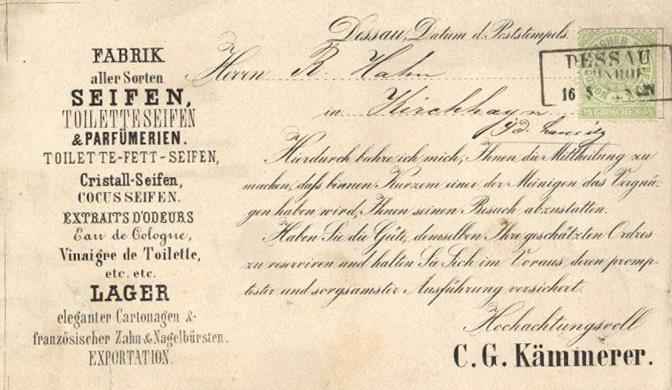 FABRIK
aller Sorten
SEIFEN,
TOILETTESEIFEN
& PARFÜMERIEN.
TOILETTE-FETT-SEIFEN,
Cristall-Seifen,
COCUSSEIFEN.
EXTRAITS D'ODEURS
Eau de Cologne,
Vinaigre de Toilette,
etc. etc.
LAGER
eleganter Cartonagen &
französischer Zahn & Nagelbürsten.
EXPORTATION.
Dessau, Datum d. Poststempels.
Herrn R. Hahn
in Kirchhayn
Hierdurch beehre ich mich, Ihnen die Mittheilung zu
machen, daß binnen Kurzem einer der Meinigen das Vergnü-
gen haben wird, Ihnen seinen Besuch abzustatten.
Haben Sie die Güte, demselben Ihre geschätzten Ordres
zu reserviren und halten Sie Sich im Voraus, deren promp-
tester und sorgsamster Ausführung versichert.
Hochachtungsvoll
C. G. Kämmerer.
DESSAU
16 8
GROSCHEN